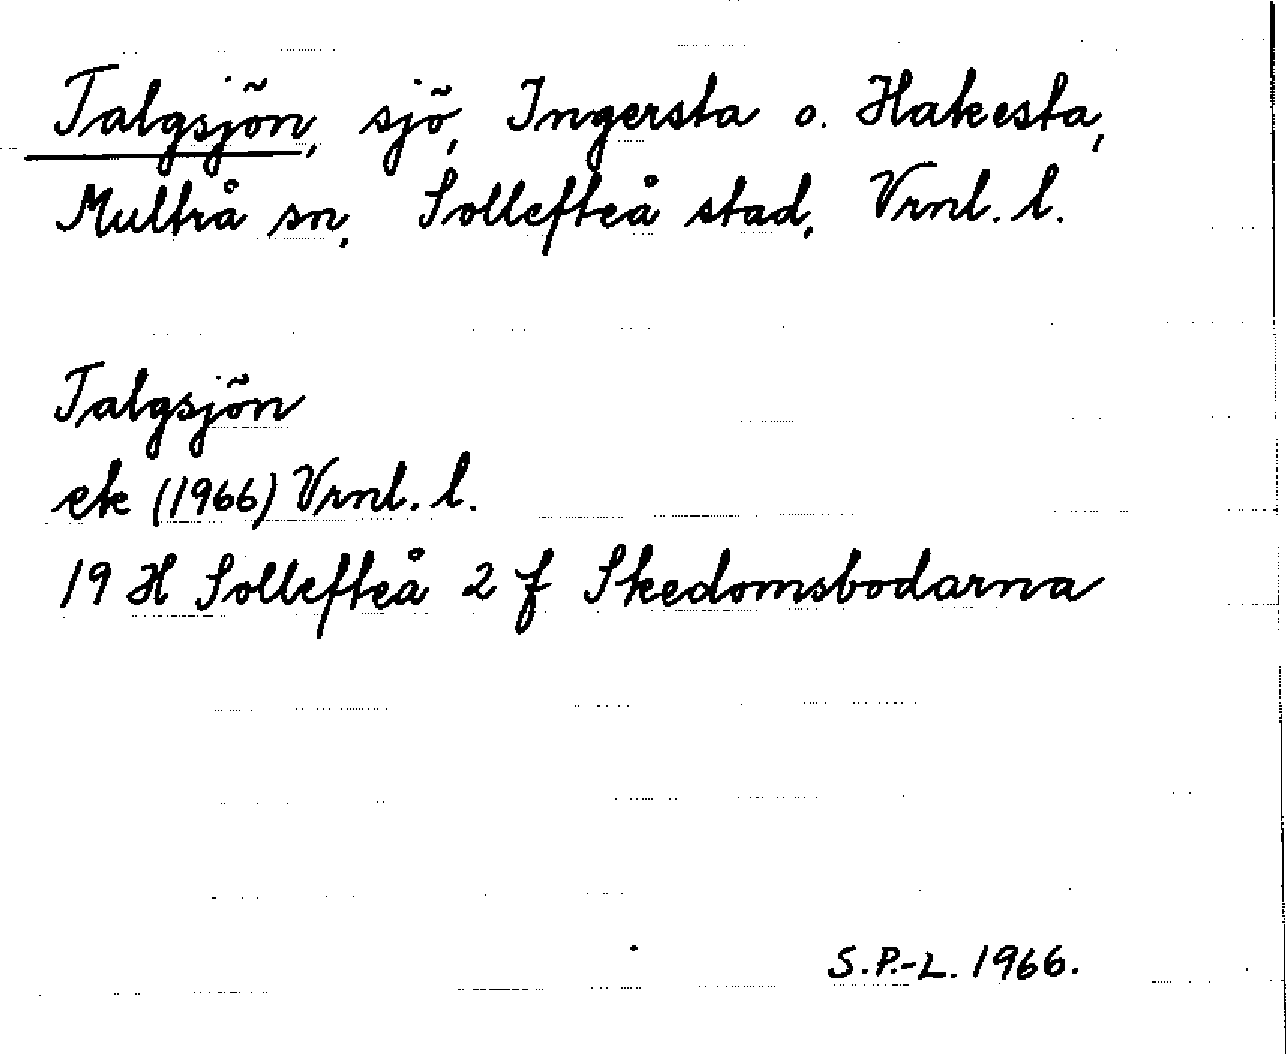 Talgsjön, sjö, Ingersta o. Hakesta,
Multrå sn, Sollefteå stad, Vrnl. l.
Talgsjön
ek (1966) Vrnl. l.
19 H Sollefteå 2 f Skedomsbodarna
S.P.-L. 1966.